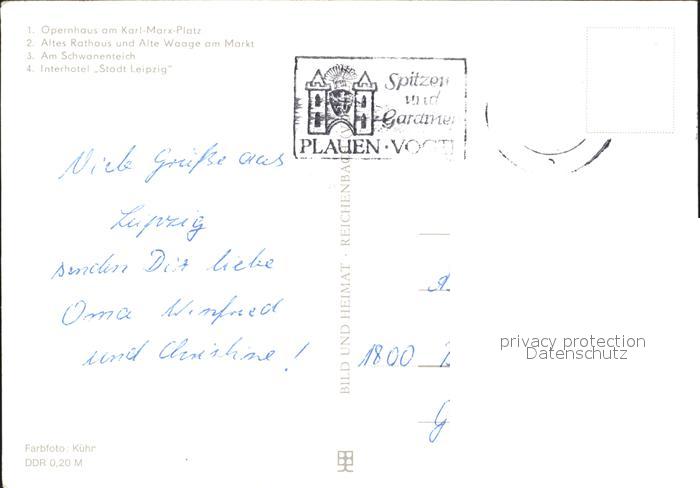 1. Opernhaus am Karl-Marx-Platz
2. Altes Rathaus und Alte Waage am Markt
3. Am Schwanenteich
4. Interhotel „Stadt Leipzig"
Spitzen
und
Gardinen
PLAUEN · VOGT
Viele Grüße aus
Leipzig
senden Dir liebe
Oma Winfried
und Christine!
BILD UND HEIMAT · REICHENBACH
1800
G
privacy protection
Datenschutz
Farbfoto: Kühn
DDR 0,20 M